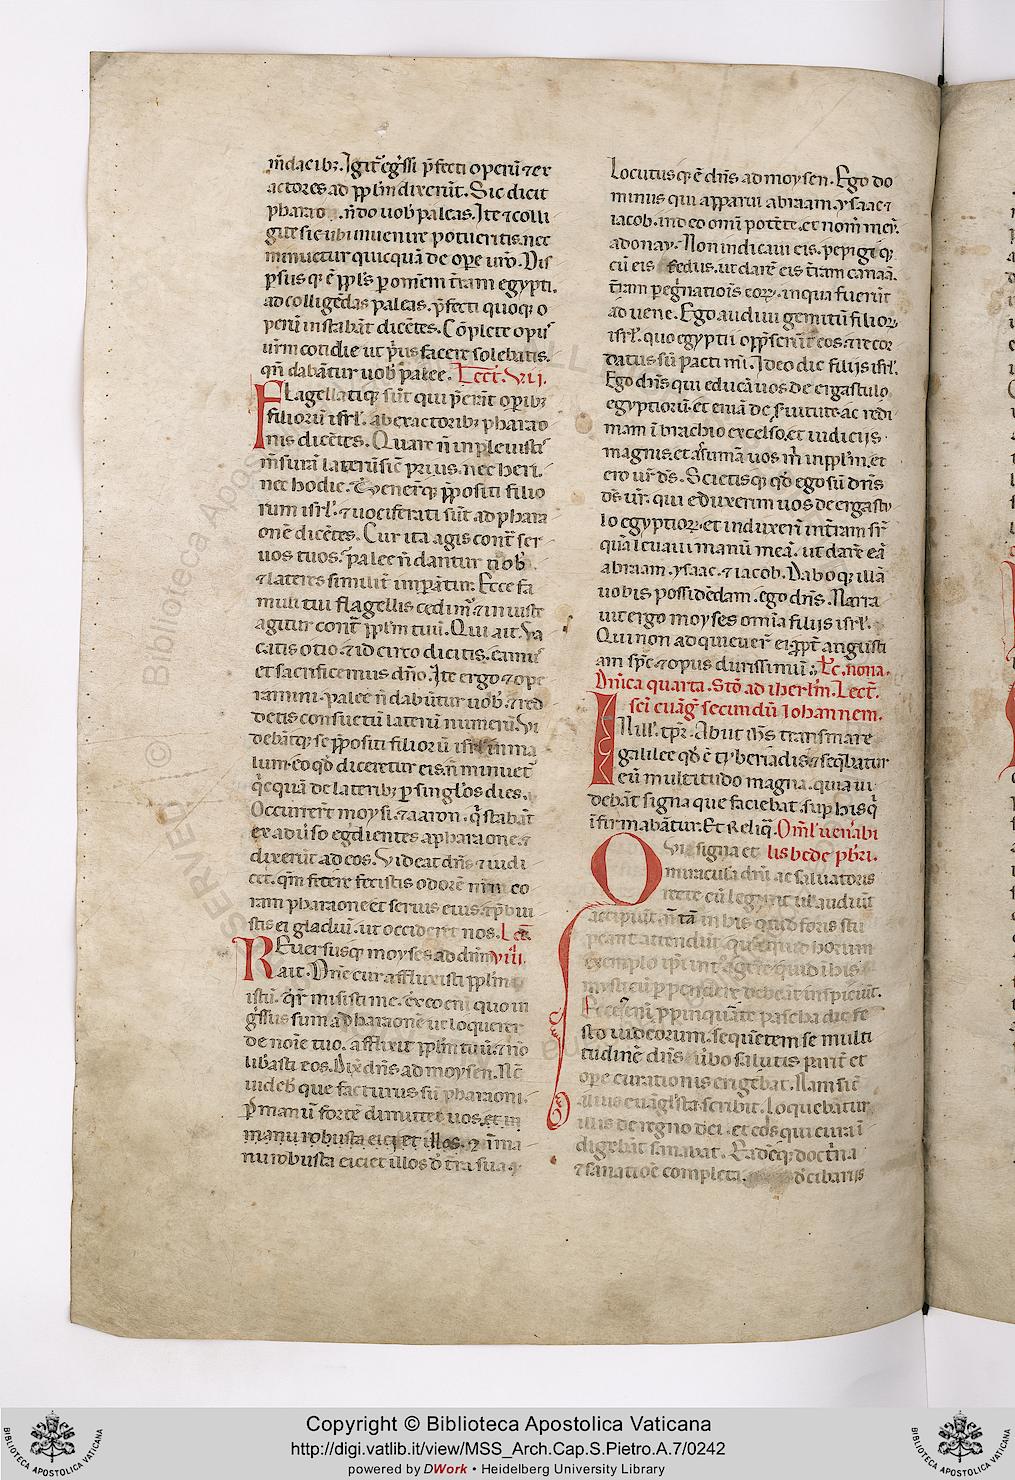 m̄dacibꝫ. Igit᷑ eg̃ssi p̃fecti operũ ⁊ ex
actores ad ppl̃m dixerũt. Sic dicit
pharao. ñ do uob̾ paleas. Ite ⁊ colli
gite sicubi inuenire potueritis. nec
minuetur quicquã de oꝑe ur̃o. Dis
ꝑsus qꝫ ẽ ppl̃s ꝑ om̃em t̃ram egypti.
ad colligẽdas paleas. p̃fecti quoqꝫ o
perũ instabãt dicẽtes. Cõplete opus
ur̃m cotidie ut p̃us facere solebatis.
qñ dabãtur uob̾ palee. Lect̃. VII.
Flagellatiqꝫ sũt qui p̃erãt oꝑibꝫ
filiorũ isrl̃. ab exactoribꝫ pharao
nis dicẽtes. Quare ñ inpleuistis
m̃surã laterũ sic̃ prius. nec heri.
nec hodie. Veneriũtqꝫ p̃positi filio
rum isrl̃. ⁊ uociferati sũt ad phara
onẽ dicẽtes. Cur ita agis cont̃ ser
uos tuos. palee ñ dantur nob̾
⁊ lateres similit̃ imꝑãtur. Ecce fa
muli tui flagellis cedim̾ ⁊ iniuste
agitur cont̃ ppl̃m tuũ. Qui ait. Va
catis otio ⁊ idcirco dicitis. eamus
et sacrificemus dño. Ite ergo ⁊ oꝑe
ramini. palee ñ dabũtur uob̾. ⁊ red
detis consuetũ laterũ numerũ. Vi
debãtqꝫ se p̃positi filiorũ isrl̃ in ma
lum. eo qd̾ diceretur eis. ñ minuet̃
q̃cquã de lateribꝫ ꝑ singl̃os dies.
Occurrer̃t moysi. ⁊ aaron. q̃ stabãt
ex aduẽso eg̃dientes a pharaone. ⁊
dixerũt ad eos. Videat dñs ⁊ iudi
cet. qm̃ fetere fecistis odorẽ nr̃m co
ram pharaone et seruis eius. ⁊ p̃bui
stis ei gladiũ. ut occideret nos. Lect̃.
Reuersusqꝫ moyses ad dñm VIII.
ait. Dñe cur afflixisti ppl̃m
istũ. q̃r misisti me. ex eo eni quo in
g̃ssus sum ad pharaonẽ ut loquerer
de noĩe tuo. afflixit ppl̃m tuũ. ⁊ ño
lib̾asti eos. Dix̾ dñs ad moysen. Nc̃
uideb̾ que facturus sũ pharaoni.
ꝑ manũ fortẽ dimittet uos. et in
manu robusta eiciet illos. ⁊ ĩ ma
nu robusta eiciet illos d̾ t̃ra sua.
Locutusqꝫ ẽ dñs ad moysen. Ego do
minus qui apparui abraam. ysaac. ⁊
iacob. in deo om̃i potẽte. et nom̃ meũ.
adonay. Non indicaui eis. pepigiqꝫ
cũ eis fedus. ut darẽ eis t̃ram canaã.
t̃ram peg̃natiõis eoꝝ. in qua fuerũt
aduene. Ego audiui gemitũ filioꝝ
isrl̃. quo egyptii opp̃serũt eos. ⁊ recor
datus sũ pacti mĩ. Ideo dic filiis isrl̃.
Ego dñs qui educã uos de ergastulo
egyptiorũ. et eruã de s̾uitute. ac redi
mam ĩ brachio excelso. et iudiciis
magnis. et assumã uos m̃ in ppl̃m. et
ero ur̃ ds̃. Scietisqꝫ qd̾ ego sũ dñs
ds̃ ur̃. qui eduxerim uos de ergastu
lo egyptioꝝ. et induxerĩ in t̃ram sr̃
quã leuaui manũ meã. ut darẽ eã
abraam. ysaac. ⁊ iacob. Daboqꝫ illã
uobis possidẽdam. ego dñs. Narra
uit ergo moyses om̃ia filiis isrl̃.
Qui non adquieuer̃ ei. ꝓpt̃ angusti
am sp̃c ⁊ opus durissimũ. Lc̃. nona.
Dñica quarta. Stõ ad iherl̃m. Lect̃.
sc̃i euãg̃. secundũ Iohannem.
IN ill̾. tp̃r. Abiit ih̃s trans mare
galilee qd̾ ẽ tyberiadis. ⁊ seq̃batur
eũ multitudo magna. quia ui
debãt signa que faciebat. sup his q̃
ĩfirmabãtur. Et Reliq̃. Oml̾. uen̾abi
Qui signa et lis bede pb̃ri.
miracula dñi ac saluatoris
nr̃i rete cũ legũt ul̾ audiũt
accipiũt. ñ tã in his quid foris stu
peant attendũt. quã quid horum
exemplo ip̃i int̾ agere. quid ĩ his
misticũ ꝑpendere debeãt inspiciũt.
Ecce eni p̃pinquãte pascha die fe
sto iudeorum. sequẽtem se multi
tudinẽ dñs. uerbo salutis parit̃ et
oꝑe curationis erigebat. Nam sic̃
alius euãgl̃ista scribit. Loquebãtur
illis de regno dei. et eos qui cura ĩ
digebãt sanabat. Eadẽqꝫ doct̃na
⁊ sanatiõe completa. d̾ cibariis
Copyright © Biblioteca Apostolica Vaticana
http://digi.vatlib.it/view/MSS_Arch.Cap.S.Pietro.A.7/0242
powered by DWork • Heidelberg University Library
BIBLIOTECA APOSTOLICA VATICANA
BIBLIOTECA APOSTOLICA VATICANA